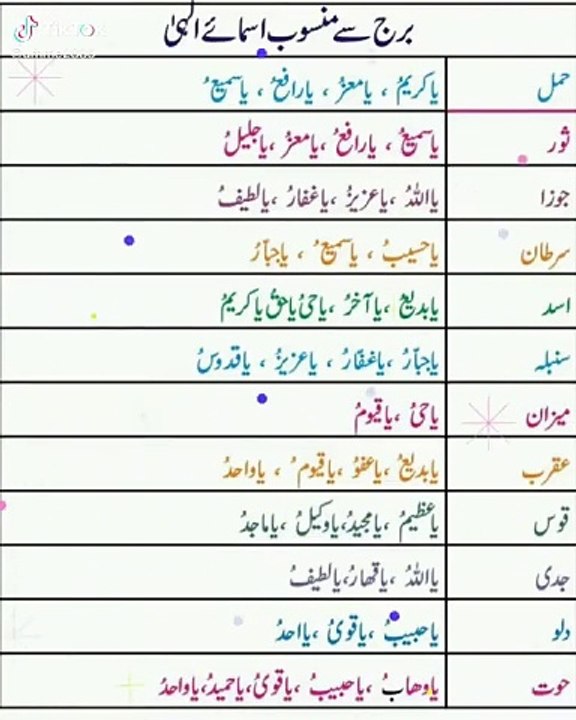 برج سے منسوب اسمائے الٰہی
حمل یاکریمُ ، یامعزُ ، یارافعُ ، یاسمیعُ
ثور یاسمیعُ ، یارافعُ ،یامعزُ ،یاجلیلُ
جوزا یااللہُ ،یاعزیزُ ،یاغفارُ ،یالطیفُ
سرطان یاحسیبُ ، یاسمیعُ ، یاجبّارُ
اسد یابدیعُ ،یاآخرُ ،یاحیُ یاحقُ یاکریمُ
سنبلہ یاجبّارُ ،یاغفّارُ ، یاعزیزُ ، یاقدوسُ
میزان یاحیُ ،یاقیومُ
عقرب یابدیعُ ،یاعفوُ ،یاقیومُ ، یاواحدُ
قوس یاعظیمُ ،یامجیدُ،یاوکیلُ ،یاماجدُ
جدی یااللہُ ،یاقھارُ،یالطیفُ
دلو یاحبیبُ ،یاقویُ ،یااحدُ
حوت یاوھابُ ،یاحبیبُ ،یاقویُ،یاحمیدُ،یاواحدُ